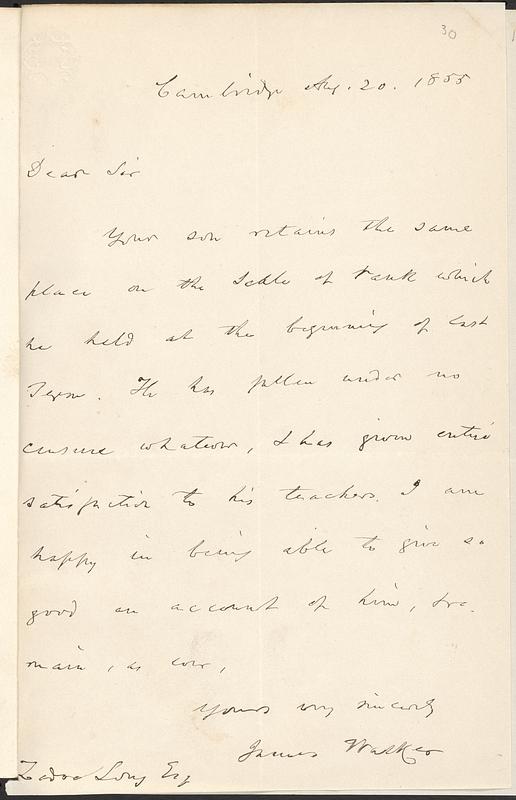 30
Cambridge Aug. 20. 1855
Dear Sir
Your son retains the same
place on the Scale of rank which
he held at the beginning of last
Term. He has fallen under no
censure whatever, & has given entire
satisfaction to his teachers. I am
happy in being able to give so
good an account of him, & re-
main, as ever,
Yours very sincerely
James Walker
Zadoc Long Esq